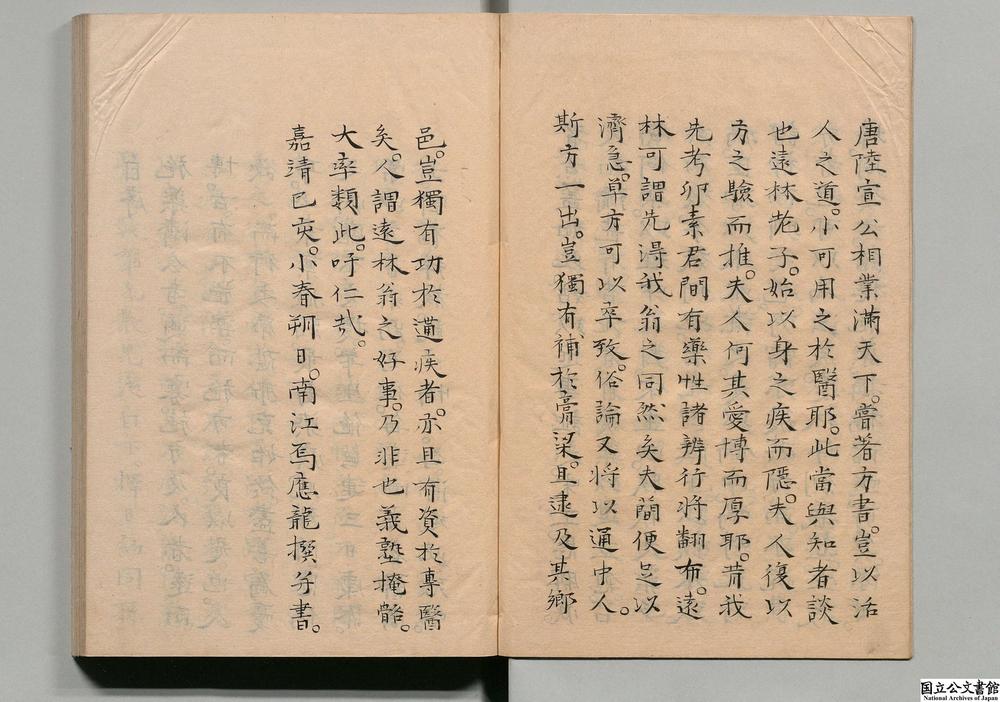 唐陸宣公相業滿天下。嘗著方書。豈以活
人之道。小可用之於醫耶。此當與知者談
也遠林老子。始以身之疾而隱。夫人復以
方之驗而推。夫人何其愛博而厚耶。昔我
先考卯素君間有藥性諸辨行將翻布。遠
林可謂先得我翁之同然矣夫簡便足以
濟急。草方可以卒致。俗論又將以通中人。
斯方一出。豈獨有補於膏粱。且逮及其鄉
邑。豈獨有功於遘疾者。亦且有資於專醫
矣。人謂遠林翁之好事。乃非也義塾掩骼。
大率類此。吁仁哉。
嘉清己亥。小春朔日。南江馬應龍撰并書。
国立公文書館
National Archives of Japan